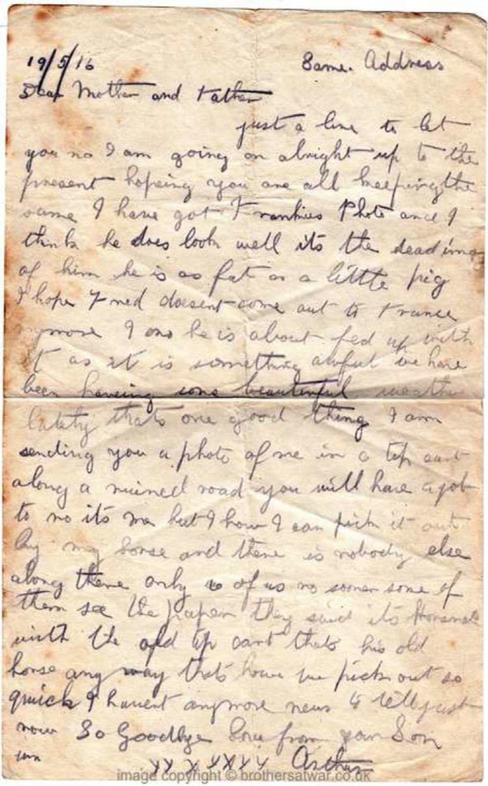 19/5/16
Same. Address
Dear Mother and Father
just a line to let
you no I am going on alright up to the
present hoping you are all keeping the
same I have got Frankies Photo and I
think he does look well its the dead
of him he is as fat as a little pig
I hope Fred doesent come out to France
anymore I he is about fed up with
it as it is something awful we have
been having some beautiful weather
lately thats one good thing I am
sending you a photo of me in a tip cart
along a ruined road you will have a job
to no its me but I know I can pick it out
by my horse and there is nobody else
along there only of us no sooner some of
them see the paper they said its
with the old tip cart thats his old
horse any way thats how we pick out so
quick I havent anymore news to tell just
now So Goodbye love from your Son
xx x xxxx x x Arthur
image copyright © brothersatwar.co.uk